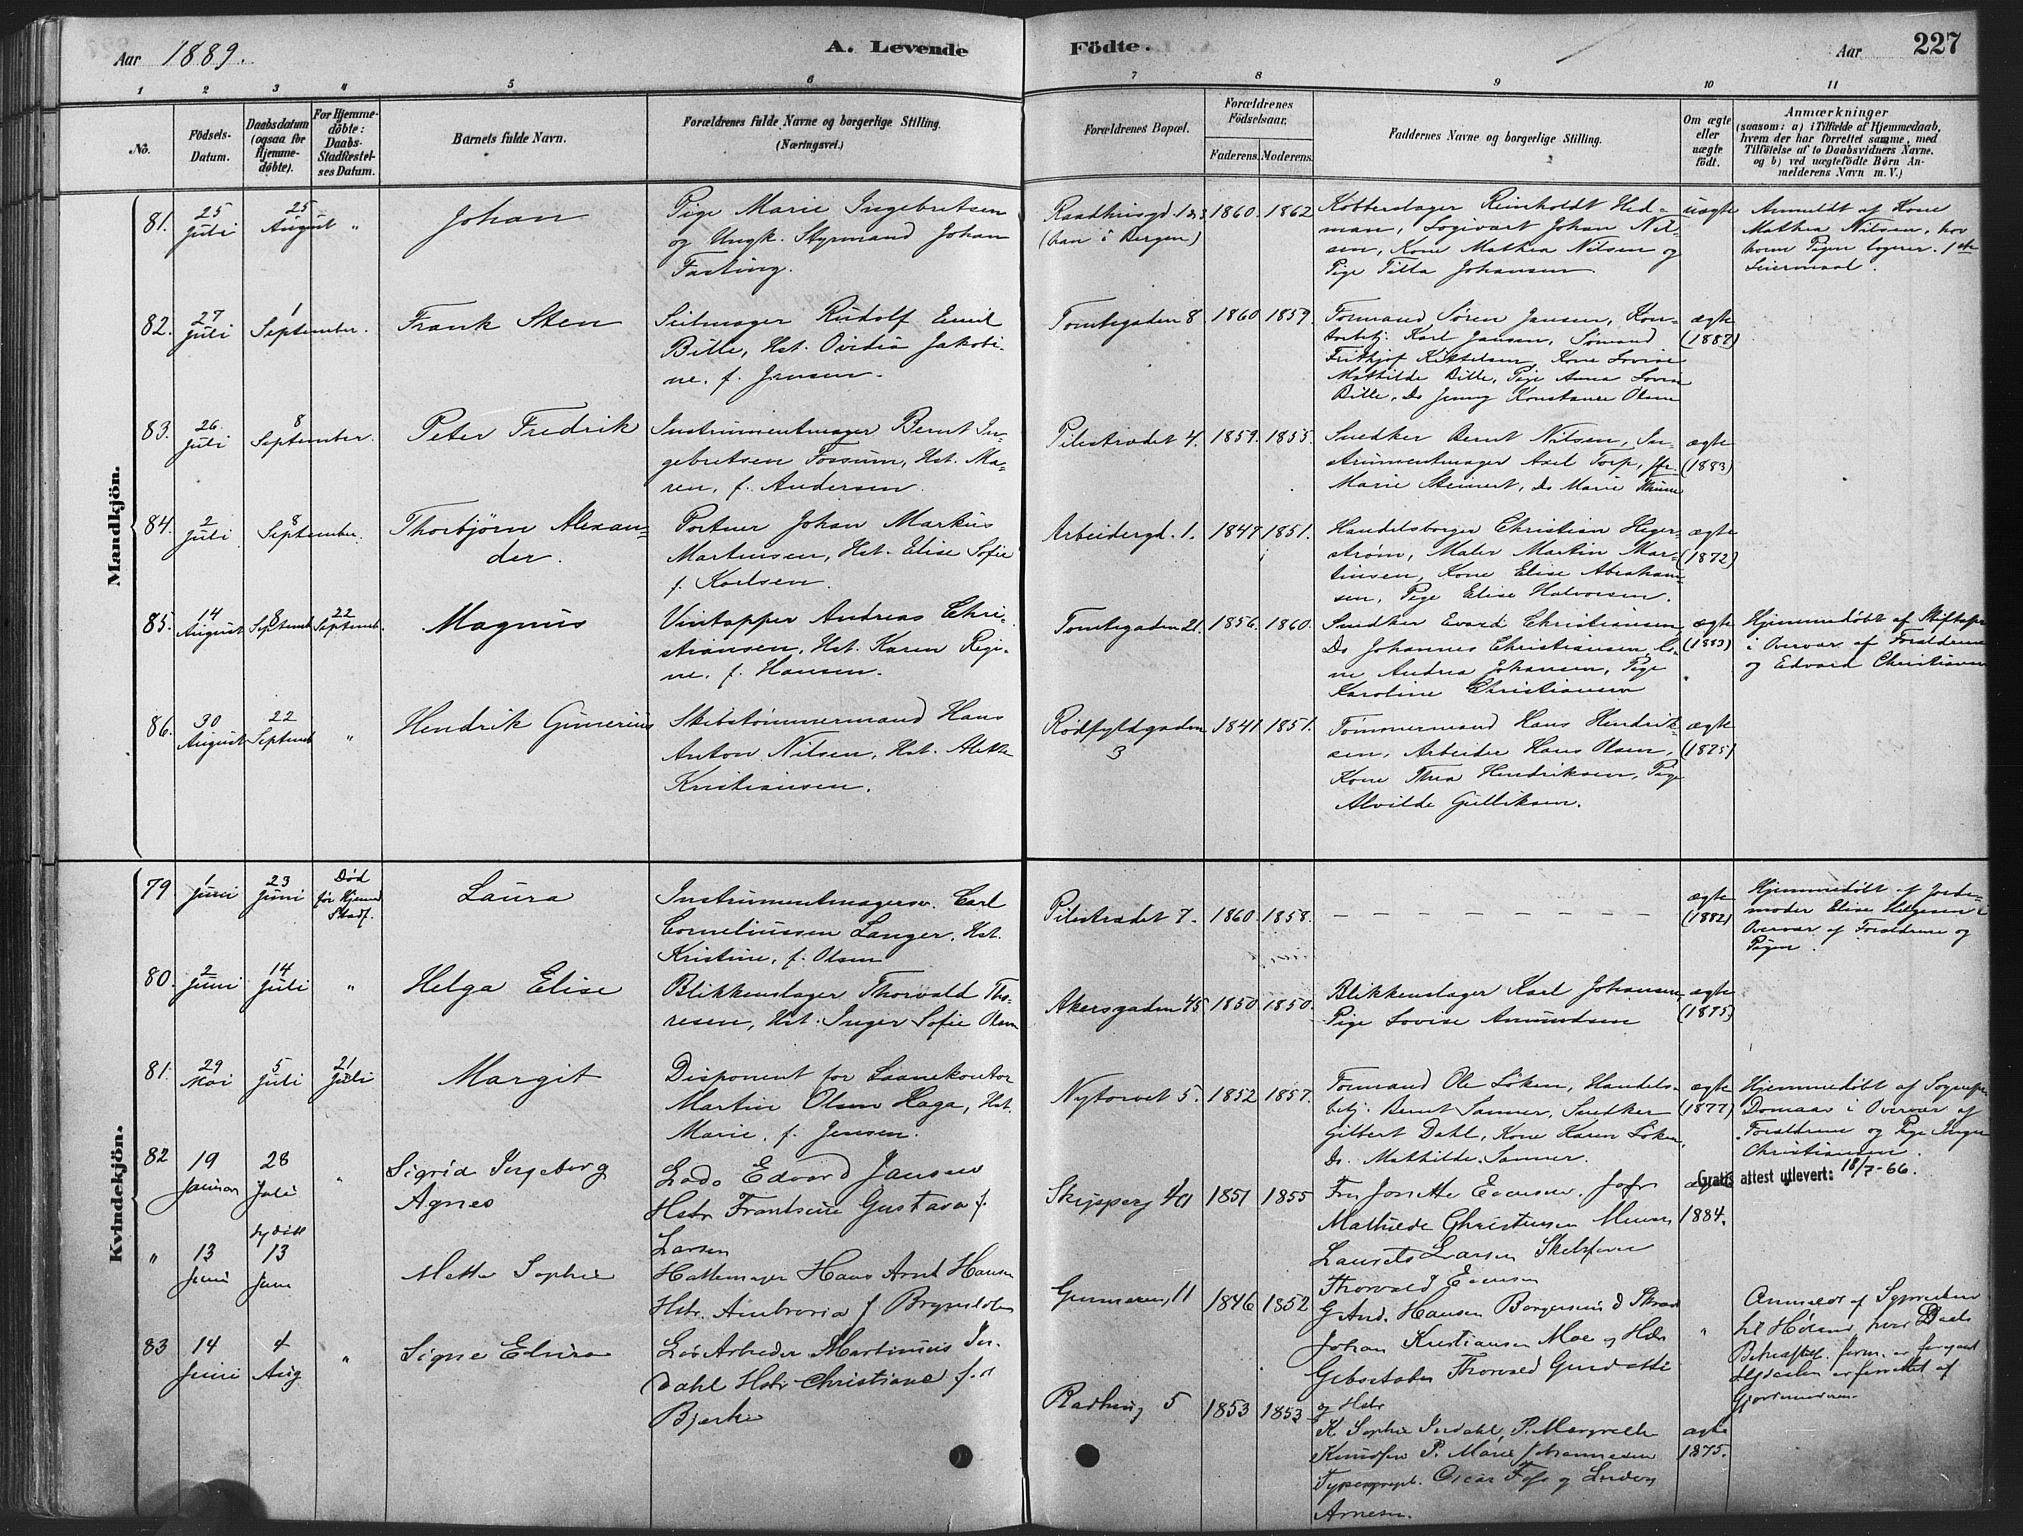 Aar 1889.
A. Levende
Födte.
Aar
227
1 2 3 4 5 6 7 8 9 10 11
No.
Födsels-
Datum.
Daabsdatum
(ogsaa for
Hjemme-
döbte).
For Hjemme-
döbte:
Daabs-
Stadfæstel-
ses Datum.
Barnets fulde Navn.
Forældrenes fulde Navne og borgerlige Stilling.
(Næringsvei.)
Forældrenes Bopæl.
Forældrenes
Födselsaar.
Faderens. Moderens.
Faddernes Navne og borgerlige Stilling.
Om ægte
eller
uægte
födt.
Anmærkninger
(saasom: a) i Tilfælde af Hjemmedaab,
hvem der har forrettet samme, med
Tilföielse af to Daabsvidners Navne.
og b) ved uægtefödte Börn An-
melderens Navn m. V.)
Mandkjön.
81.
25
Juli
25
August
"
Johan
Pige Marie Ingebretsen
og Ungk. Styrmand Johan
Fasting.
(han i Bergen)
1860. 1862
Kobberslager Reinholdt Hed-
man, Logivært Johan Nil-
sen, Kone Mathea Nilsen og
Pige Tilla Johansen
uægte
Anmeldt af Kone
Mathea Nilsen, hos
hvem Pigen logerer. 1ste
Leiermaal.
82.
27
Juli
1
September.
Frank Sten
Seilmager Rudolf Emil
Bille, Hst. Ovidia Jakobi-
ne, f. Jensen.
Tomtegaden 8.
1860. 1859.
Formand Søren Jansen, Kon-
torbetj. Karl Jansen, Sømand
Frithjof Kittelsen, Kone Lovise
Mathilde Bille, Pige Anna Lovise
Bille, Do Jenny Konstance Olsen
ægte
(1882)
83.
26.
Juli
8
September.
Peter Fredrik
Instrumentmager Bernt In-
gebretsen Fossum, Hst. Ma-
ren, f. Andersen.
Pilestrædet 4.
1859. 1855.
Snedker Bernt Nilsen, In-
strumentmager Axel Torp, Jfr.
Marie Steinert, Do Marie
ægte
(1883)
84.
2
Juli
8
September.
Thorbjørn Alexan-
der.
Portner Johan Markus
Martinsen, Hst. Elise Sofie
f. Karlsen.
Arbeidergd. 1.
1847 1851.
Handelsborger Christian Heger-
strøm, Maler Martin Mar-
tinsen, Kone Elise Abraham-
sen, Pige Elise Halvorsen.
ægte
(1872)
85.
14
August
8
Septemb.
22
Septemb.
Magnus
Vintapper Andreas Chri-
stiansen, Hst. Karen Regi-
ne, f. Hansen.
Tomtegaden 21.
1856. 1860.
Snedker Evard Christiansen,
Do Johannes Christiansen, Ko-
ne Andrea Johansen, Pige
Karoline Christiansen
ægte
(1883)
Hjemmedøbt af Stiftspr.
i Overvær af Forældrene
og Edvard Christiansen
86.
30
August
22
Septemb
"
Hendrik Gunerius
Skibstømmermand Hans
Anton Nilsen, Hst. Alette
Kristiansen.
Rødfyldgaden
3
1841 1851.
Tømmermand Hans Hendrik-
sen, Arbeider Hans Olsen,
Kone Thea Hendriksen, Pige
Alvilde Gulliksen.
ægte
(1875)
Kvindekjön.
79.
1
Juni
23
Juni
Død
før Hjemmed.
Stadf.
Laura
Instrumentmagersv. Carl
Corneliussen Langer, Hst.
Kristine, f. Olsen
Pilestrædet 7.
1860. 1858.
— — — — — — — —
ægte
(1882)
Hjemmedøbt af Jorde-
moder Elise Helgesen i
Overvær af Forældrene og
Pigen.
80.
2
Juni
14
Juli
"
Helga Elise
Blikkenslager Thorvald Tho-
resen, Hst. Inger Sofie Olsen
Akersgaden 45
1850 1850.
Blikkenslager Karl Johansen
Pige Lovise Amundsen
ægte
(1875)
81.
29
Mai
5
Juli
21
Juli
Margit
Disponent for Laanekontor
Martin Olsen Haga, Hst.
Marie, f. Jensen.
Nytorvet 5.
1852 1857.
Formand Ole Løken, Handels-
betj. Bernt Sanner, Snedker
Gilbert Dahl, Kone Karen Løken,
Do. Mathilde Sanner.
ægte
(1877)
Hjemmedøbt af Sognepr.
Domaas i Overvær af
Forældrene og Pige Inger
Christiansen.
Gratis attest utlevert: 18/7-66.
82
19
Januar
28
Juli
"
Sigrid Ingeborg
Agnes
Lods Edvard Jansen
Hstr Frantsine Gustava f.
Larsen
1851 1855
Fru Josette Evensen. Jofr
Mathilde Christensen
Lauritz Larsen
Thorvald Evensen
ægte
1884.
"
13
Juni
13
Juni
Mette Sophie
Hattemager Hans Arnt Hansen
Hstr. Ambroria f
11
1846 1852
G And. Hansen
Johan Kristiansen Moe og Hstr
Thorvald
og Hstr
"
Anmeldt af Sognepræsten
til Høland, hvor Daab
83
14
Juni
4
Aug
"
Signe Elvira
Løs Arbeider Martinius In-
dahl Hstr Christiane f.
Bjerke
Radhusg 5
1853 1853
K. Sophie Indahl, P. Margrethe
Knudsen P. Marie Johannesen
Typograph. Oscar Foss og Ludvig
Arnesen.
ægte
1875.